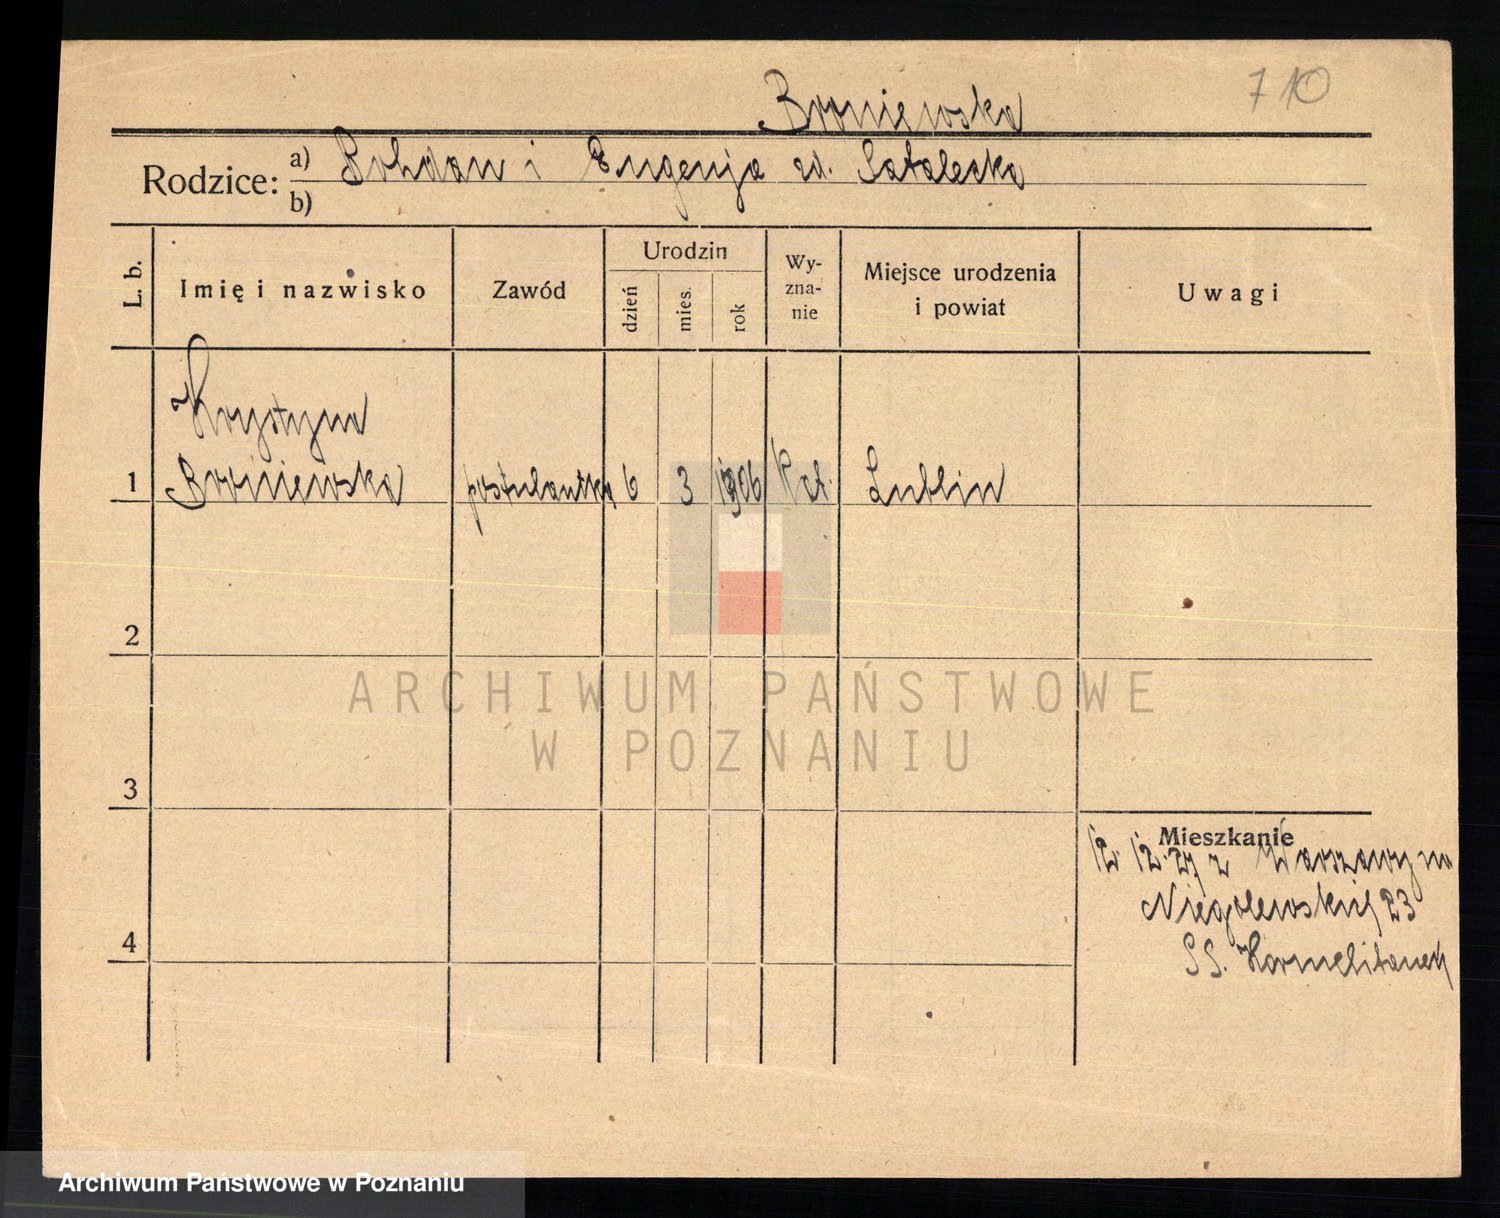 710
Broniewska
Rodzice: a) Bohdan i Eugenja zd.
b)
L. b.
Imię i nazwisko
Zawód
Urodzin
dzień
mies.
rok
Wy-
zna-
nie
Miejsce urodzenia
i powiat
Uwagi
Krystyna
1 Broniewska postulantka 6 3 1906 Kat. Lublin
2
ARCHIWUM PAŃSTWOWE
W POZNANIU
3
Mieszkanie
12. 12. 27 z Warszawy na
Niegolewskich 23
4
SS. Karmelitanek
Archiwum Państwowe w Poznaniu